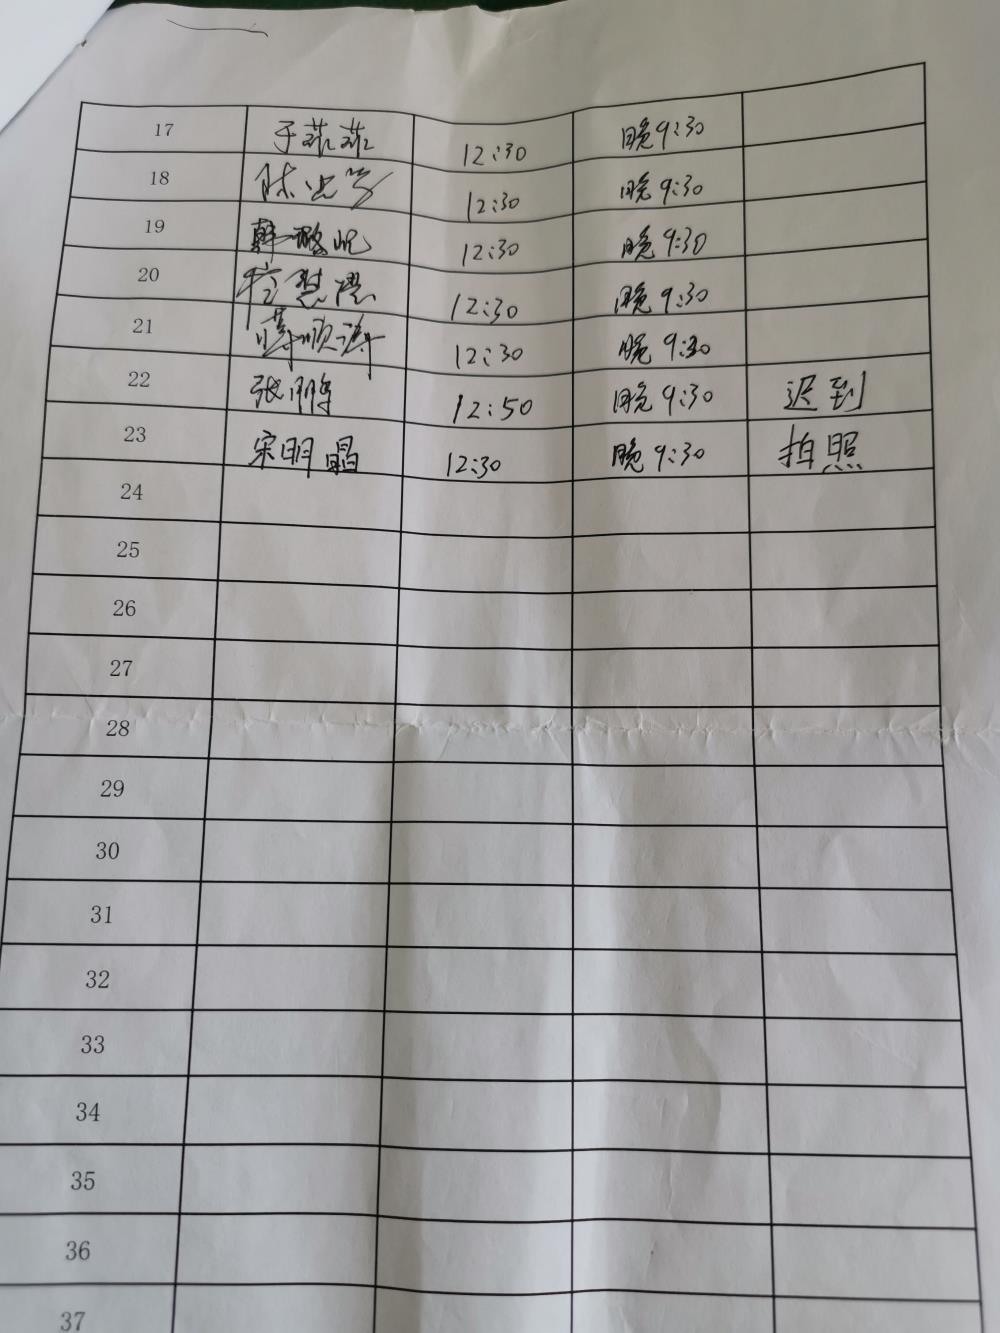 17 于菲菲 12:30 晚9:30
18 陈 12:30 晚9:30
19 韩 12:30 晚9:30
20 慧 12:30 晚9:30
21 蒋顺涛 12:30 晚9:30
22 张鹏 12:50 晚9:30 迟到
23 宋明晶 12:30 晚9:30 拍照
24
25
26
27
28
29
30
31
32
33
34
35
36
37